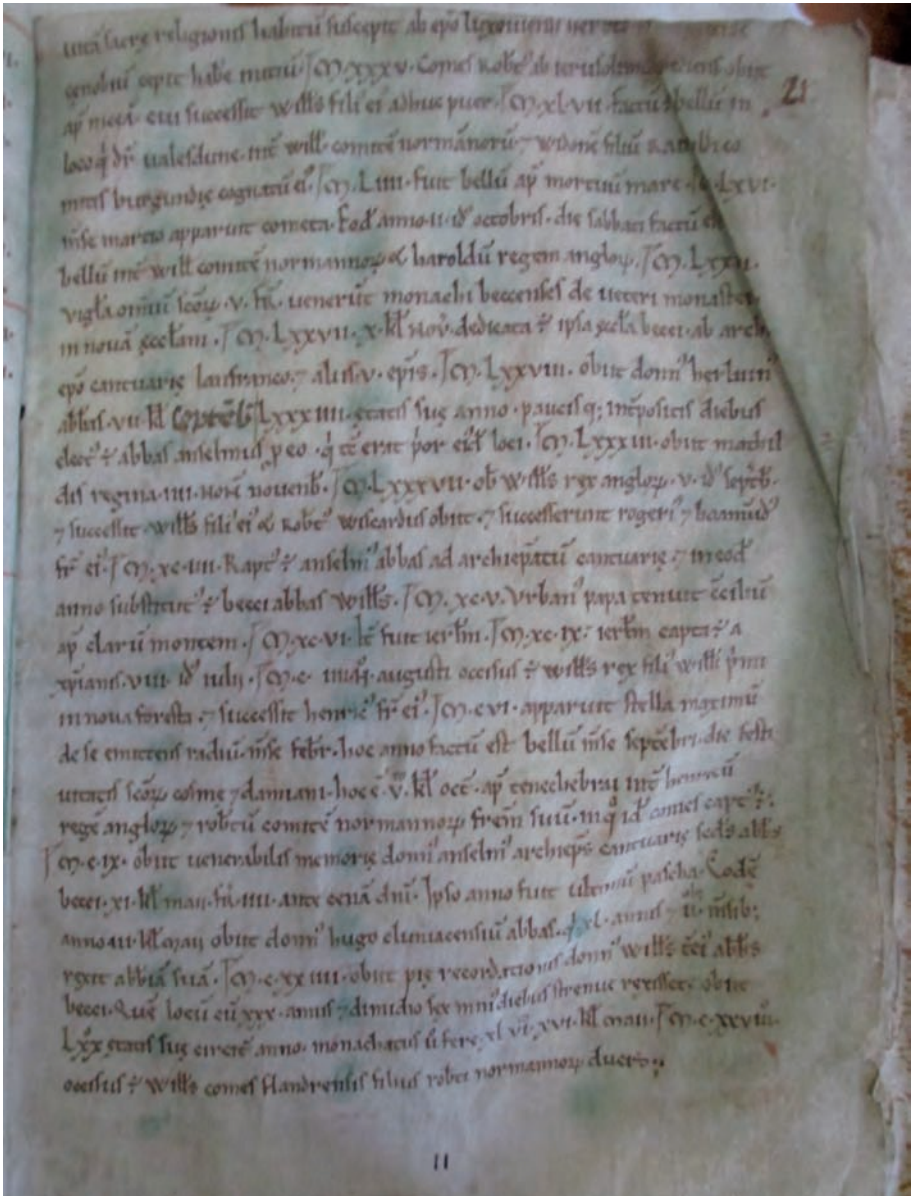 uitã sacrę religionis habitũ suscepit ab epõ
cęnobiũ cepit habẽ initiũ. M.xxx.v. Comes Robt ab ierosolimis rediens obiit
21
ap̃ niceã. cui successit Wills fili ei adhuc puer. M.xl.vii. factũ bellũ in
loco q̃ dr ualesdune. int̃ will comitẽ normannorũ ⁊ Widonẽ filiũ
mitis burgundię cognatũ ei. M.Liiii. fuit bellũ ap̃ mortuũ mare. M.Lxvi.
m̃se marcio apparuit cometa. Eod anno .ii. id octobris. die sabbati factũ est
bellũ int̃ will comitẽ normannoꝝ & haroldũ regem angloꝝ. M.Lxxii.
uigła omiũ scõꝝ .v. fr. uenerũt monachi beccenses de ueteri monaster
in nouã ęccłam. M.Lxxvii. x. kł nou. dedicata ẽ ipsa ęccła becci. ab archi
epõ cantuarię lanfranco. ⁊ aliis .v. epis. M.Lxxviii. obiit domn herluin
abbas. vii. kł Septẽb Lxxxiiii. ętatis suę anno. paucisq; int̃positis diebus
elect ẽ abbas anselmus p eo. q̃ tc̃ erat p̃or eid loci. M.Lxxxiii. obiit mathil
dis regina. iiii. non nouenb. M.Lxxxvii. ob Wills rex angloꝝ. v. id septẽb.
⁊ successit. Wills fili ei & Robt Wiscardus obiit. ⁊ successerunt rogeri ⁊ boamũd
fr ei. M.xc.iii. Rapt ẽ anselm abbas ad archiepatũ cantuarię. ⁊ in eod
anno substitut ẽ becci abbas Wills. M.xc.v. Vrban papa tenuit c̃ciliũ
ap̃ clarũ montem. M.xc.vi. it fuit ierłm. M.xc.ix. ierłm capta ẽ a
xp̃ianis. viii. id iulii. M.c. augusti occisus ẽ Wills rex fili willi p̃mi
in noua foresta. ⁊ successit henric fr ei. M.c.vi. apparuit stella maximũ
de se emittens radiũ. m̃se febr. hoc anno factũ est bellũ m̃se septẽbri. die festi
uitatis scõꝝ cosmę ⁊ damiani. hoc ẽ v. kł oct. ap̃ tenechebrai int̃ henricũ
regẽ angloꝝ ⁊ robtũ comitẽ normannoꝝ frem suũ. in q̃ id comes capt ẽ.
M.c.ix. obiit uenerabilis memorię domn anselm archiep̃s cantuarię scds abbs
becci. xi. kł maii. fr. iiii. ante cenã dñi. Ipso anno fuit ultimũ pascha. Eodẽ
anno iii. kł maii obiit domn hugo cluniacensiũ abbas. q̃ xl. annis ⁊ m̃sib;
rexit abbiã suã. M.c.xxiiii. obiit pię recordationis domn Wills t̃ci abbs
becci. Quẽ locũ cũ xxx. annis ⁊ dimidio sex min diebus strenue rexisset. obiit
Lxx ętatis suę circit̃ anno. monachatus ũ fere xlvi. xvi. kł maii. M.c.xxviii.
occisus ẽ Wills comes flandrensis filius robti normannoꝝ ducis.
11